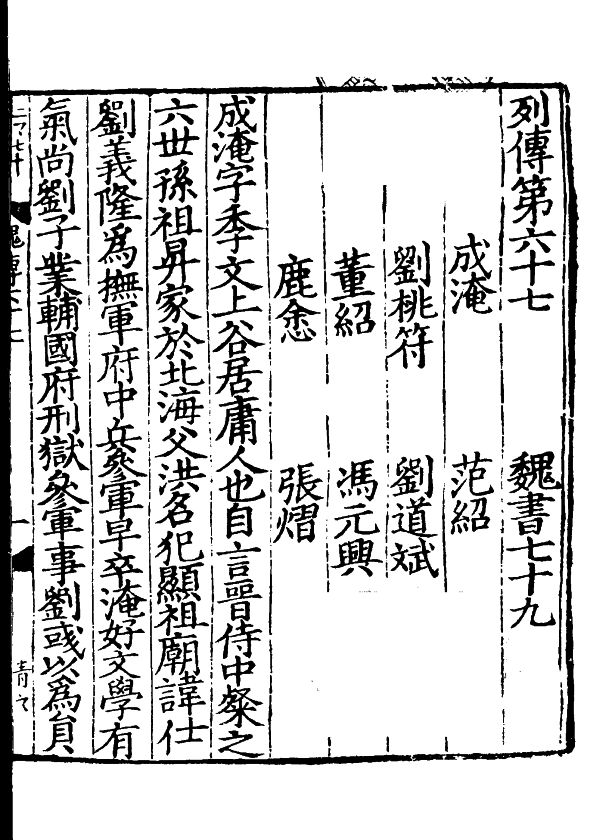 列傳第六十七 魏書七十九
成淹 范紹
劉桃符 劉道斌
董紹 馮元興
鹿悆 張熠
成淹字季文上谷居庸人也自言晉侍中粲之
六世孫祖昇家於北海父洪名犯顯祖廟諱仕
劉義隆為撫軍府中兵參軍早卒淹好文學有
氣尚劉子業輔國府刑獄參軍事劉彧以為員